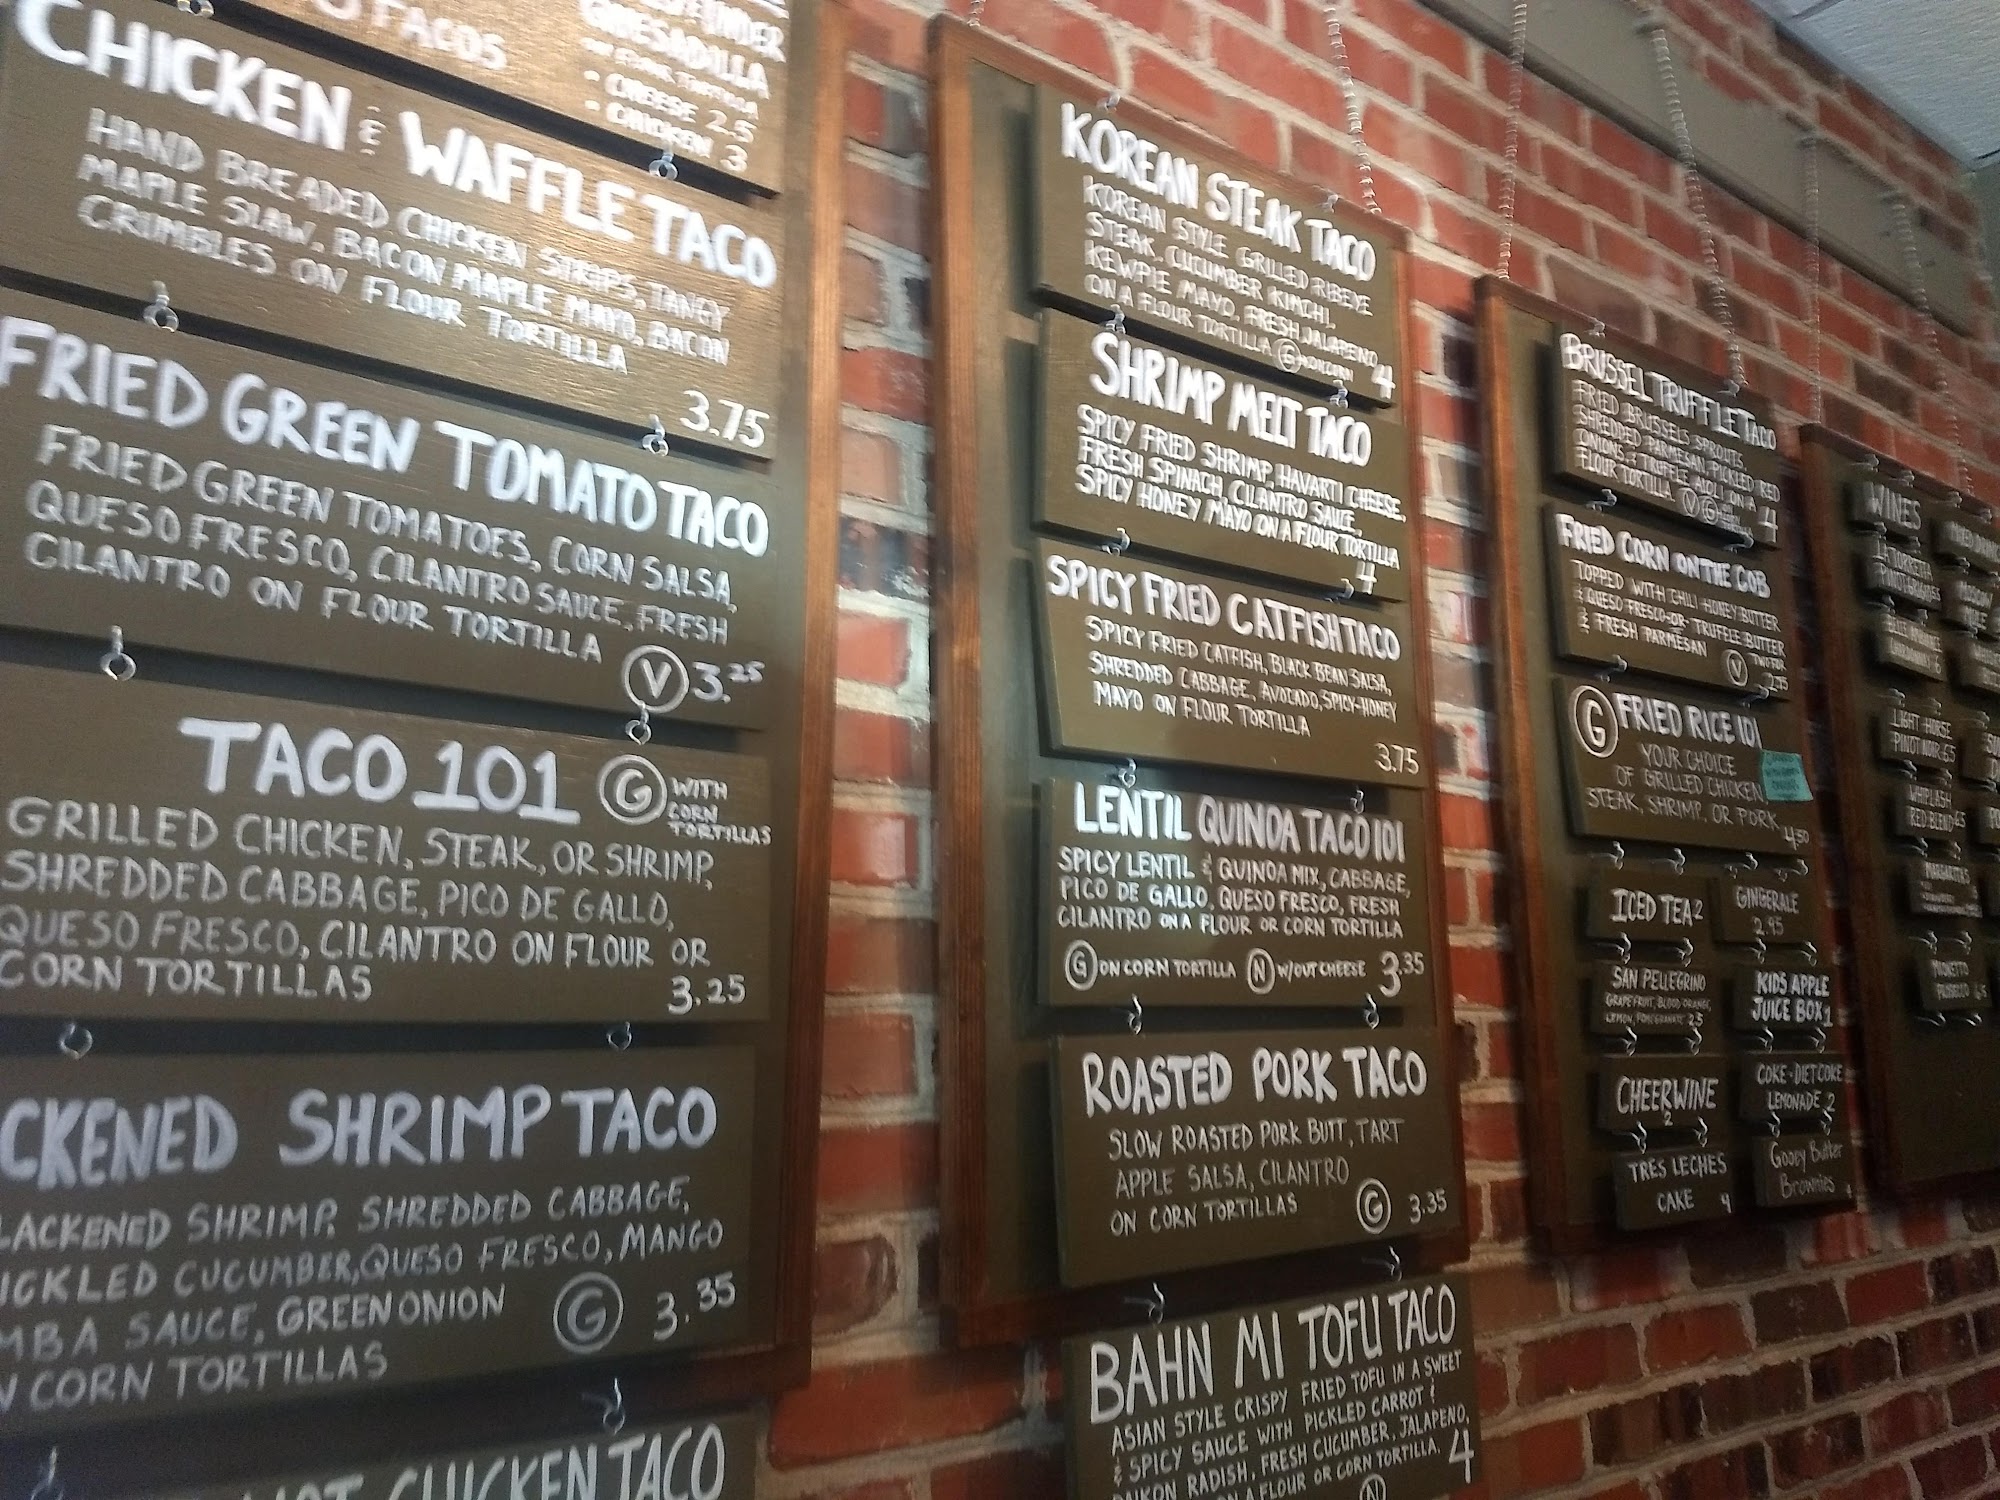 TACOS
QUESADILLA
ON FLOUR TORTILLA
• CHEESE 2.5
• CHICKEN 3
CHICKEN & WAFFLE TACO
HAND BREADED CHICKEN STRIPS, TANGY
MAPLE SLAW, BACON MAPLE MAYO, BACON
CRUMBLES ON FLOUR TORTILLA
3.75
FRIED GREEN TOMATO TACO
FRIED GREEN TOMATOES, CORN SALSA,
QUESO FRESCO, CILANTRO SAUCE, FRESH
CILANTRO ON FLOUR TORTILLA
V 3.25
TACO 101 G WITH
CORN
TORTILLAS
GRILLED CHICKEN, STEAK, OR SHRIMP,
SHREDDED CABBAGE, PICO DE GALLO,
QUESO FRESCO, CILANTRO ON FLOUR OR
CORN TORTILLAS
3.25
CKENED SHRIMP TACO
LACKENED SHRIMP, SHREDDED CABBAGE,
ICKLED CUCUMBER, QUESO FRESCO, MANGO
MBA SAUCE, GREEN ONION
N CORN TORTILLAS
G 3.35
CHICKEN TACO
KOREAN STEAK TACO
KOREAN STYLE GRILLED RIBEYE
STEAK, CUCUMBER KIMCHI,
KEWPIE MAYO, FRESH JALAPENO
ON A FLOUR TORTILLA G ON CORN
4
SHRIMP MELT TACO
SPICY FRIED SHRIMP, HAVARTI CHEESE,
FRESH SPINACH, CILANTRO SAUCE,
SPICY HONEY MAYO ON A FLOUR TORTILLA
4
SPICY FRIED CATFISH TACO
SPICY FRIED CATFISH, BLACK BEAN SALSA,
SHREDDED CABBAGE, AVOCADO, SPICY-HONEY
MAYO ON FLOUR TORTILLA
3.75
LENTIL QUINOA TACO 101
SPICY LENTIL & QUINOA MIX, CABBAGE,
PICO DE GALLO, QUESO FRESCO, FRESH
CILANTRO ON A FLOUR OR CORN TORTILLA
G ON CORN TORTILLA N W/OUT CHEESE 3.35
ROASTED PORK TACO
SLOW ROASTED PORK BUTT, TART
APPLE SALSA, CILANTRO
ON CORN TORTILLAS
G 3.35
BAHN MI TOFU TACO
ASIAN STYLE CRISPY FRIED TOFU IN A SWEET
& SPICY SAUCE WITH PICKLED CARROT &
DAIKON RADISH, FRESH CUCUMBER, JALAPENO,
ON A FLOUR OR CORN TORTILLA. 4
N
BRUSSEL TRUFFLE TACO
FRIED BRUSSELS SPROUTS,
SHREDDED PARMESAN, PICKLED RED
ONIONS & TRUFFLE AIOLI ON A
FLOUR TORTILLA V G
4
FRIED CORN ON THE COB
TOPPED WITH CHILI-HONEY BUTTER
& QUESO FRESCO-OR-TRUFFLE BUTTER
& FRESH PARMESAN V TWO FOR
2.75
G FRIED RICE 101
YOUR CHOICE
OF GRILLED CHICKEN,
STEAK, SHRIMP, OR PORK
4.50
ICED TEA 2
GINGERALE
2.95
SAN PELLEGRINO
GRAPEFRUIT, BLOOD ORANGE,
LEMON, POMEGRANATE 2.5
KIDS APPLE
JUICE BOX 1
CHEERWINE
2
COKE-DIET COKE
LEMONADE 2
TRES LECHES
CAKE 4
Gooey Butter
Brownies
WINES
LIGHT HORSE
PINOT NOIR 6.5
WHIPLASH
RED BLEND 6.5
MARGARITAS